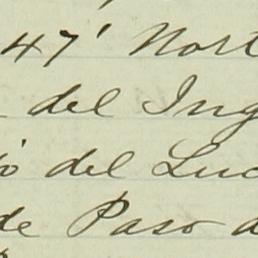 47' Nort
del Ing
del Luc
de Paso d